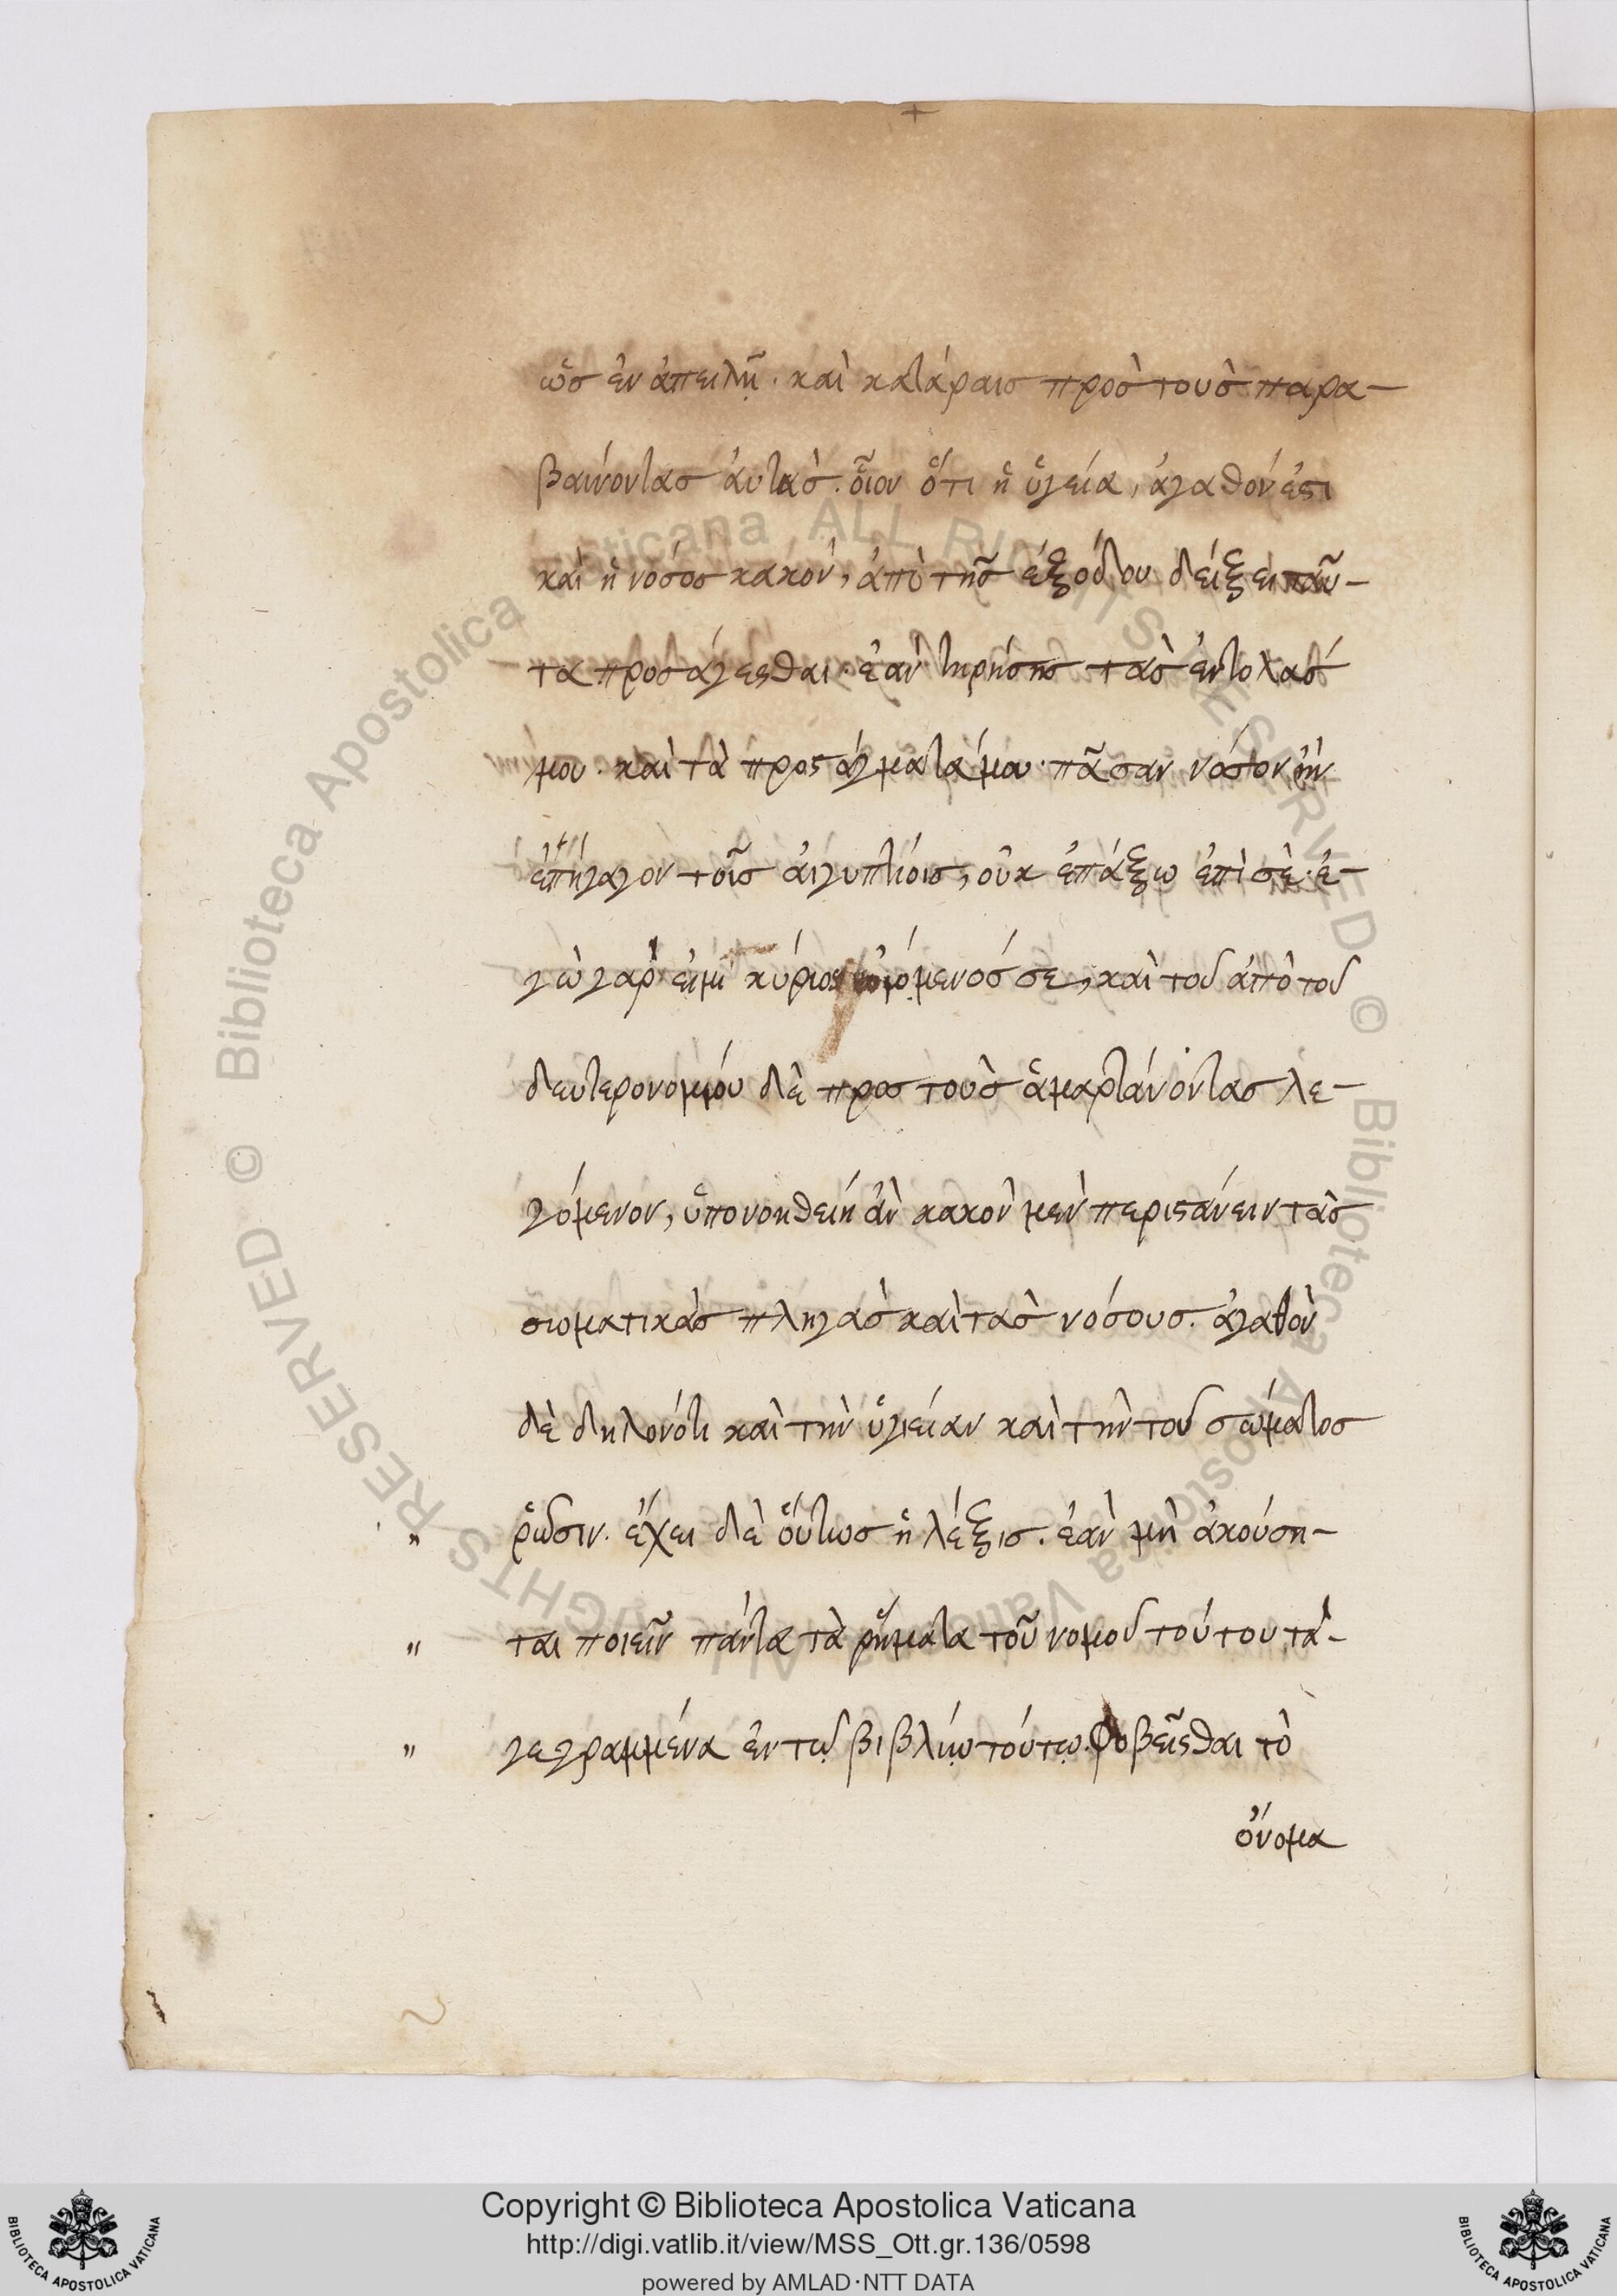 ὡσ ἐν ἀπειλῇ. καὶ κατάραισ πρὸσ τοὺσ παρα-
βαίνοντασ ἀυτὰσ. ὅιον ὅτι ἡ ὑγεία, ἀγαθόν ἐστι
καὶ ἡ νόσοσ κακὸν, ἀπὸ τῆσ ἐξόδου δείξει ταῦ-
τα προσάγεσθαι. ἐὰν τηρήσησ τὰσ ἐντολάσ
μου. καὶ τὰ προστάγματά μου. πᾶσαν νόσον ἣν
ἐπήγαγον τοῖσ ἀιγυπτίοισ, οὐκ ἐπάξω ἐπὶ σὲ. ἐ-
γὼ γαρ εἰμὶ κύριοσ ἰώμενοσ σε, καὶ τοῦ ἀπὸ τοῦ
δευτερονομίου δὲ προσ τοὺσ ἁμαρτάνοντασ λε-
γόμενον, ὑπονοηθείη ἂν κακὸν μὲν περιστάνειν τὰσ
σωματικὰσ πληγὰσ καὶ τὰσ νόσουσ. ἀγαθὸν
δὲ δηλονότι καὶ τὴν ὑγιείαν καὶ τὴν τοῦ σώματοσ
ῥῶσιν. ἔχει δὲ ὅυτωσ ἡ λέξισ. ἐὰν μὴ ἀκούση-
ται ποιεῖν πάντα τὰ ῥήματα τοῦ νομοῦ τούτου τὰ-
γεγραμμένα ἐν τῷ βιβλίῳ τούτῳ. φοβεῖσθαι τὸ
ὄνομα
Copyright © Biblioteca Apostolica Vaticana
http://digi.vatlib.it/view/MSS_Ott.gr.136/0598
powered by AMLAD·NTT DATA
BIBLIOTECA APOSTOLICA VATICANA
BIBLIOTECA APOSTOLICA VATICANA
© Biblioteca Apostolica Vaticana ALL RIGHTS RESERVED © Biblioteca Apostolica Vaticana ALL RIGHTS RESERVED